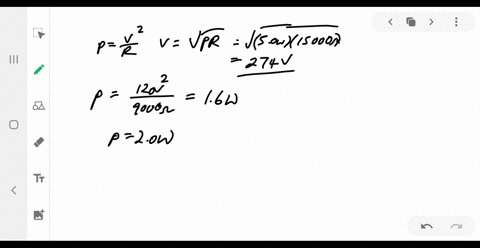 P = V²/R V = √PR = √(5.0W)(15000Ω)
= 274V
P = 120V²/9000Ω = 1.6W
P = 2.0W
TT